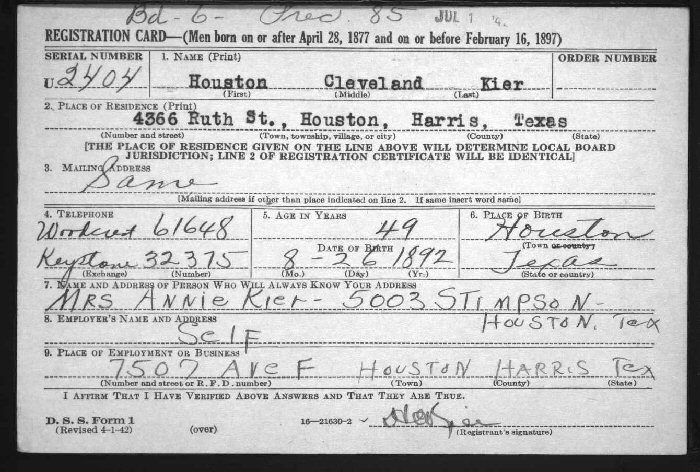 Bd-6- Prec. 85 JUL 1
REGISTRATION CARD—(Men born on or after April 28, 1877 and on or before February 16, 1897)
SERIAL NUMBER 1. NAME (Print) ORDER NUMBER
U 2404 Houston Cleveland Kier
(First) (Middle) (Last)
2. PLACE OF RESIDENCE (Print)
4366 Ruth St., Houston, Harris, Texas
(Number and street) (Town, township, village, or city) (County) (State)
[THE PLACE OF RESIDENCE GIVEN ON THE LINE ABOVE WILL DETERMINE LOCAL BOARD
JURISDICTION; LINE 2 OF REGISTRATION CERTIFICATE WILL BE IDENTICAL]
3. MAILING ADDRESS
Same
[Mailing address if other than place indicated on line 2. If same insert word same]
4. TELEPHONE 5. AGE IN YEARS 6. PLACE OF BIRTH
Woodcrest 61648 49 Houston
DATE OF BIRTH (Town or county)
Keystone 32375 8-26 1892 Texas
(Exchange) (Number) (Mo.) (Day) (Yr.) (State or country)
7. NAME AND ADDRESS OF PERSON WHO WILL ALWAYS KNOW YOUR ADDRESS
MRS ANNIE KIER- 5003 STIMPSON-
8. EMPLOYER'S NAME AND ADDRESS HOUSTON, Tex
SELF
9. PLACE OF EMPLOYMENT OR BUSINESS
7507 AVE F HOUSTON HARRIS Tex
(Number and street or R. F. D. number) (Town) (County) (State)
I AFFIRM THAT I HAVE VERIFIED ABOVE ANSWERS AND THAT THEY ARE TRUE.
D. S. S. Form 1
(Revised 4-1-42) (over) 16—21630-2 Kier
(Registrant's signature)